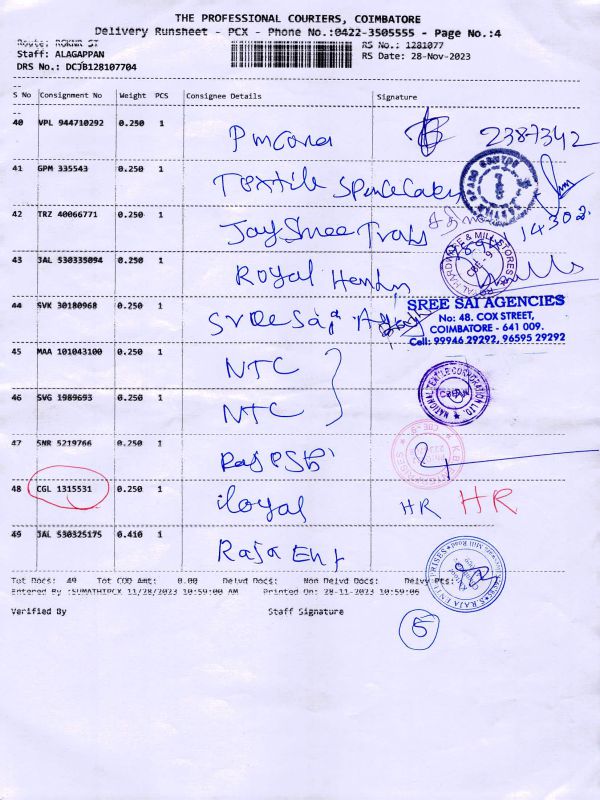 THE PROFESSIONAL COURIERS, COIMBATORE
Delivery Runsheet - PCX - Phone No.:0422-3505555 - Page No.:4
Route:
Staff: ALAGAPPAN
DRS No.: DCJB128107704
RS No.: 1281077
RS Date: 28-Nov-2023
S No Consignment No Weight PCS Consignee Details Signature
40 VPL 944710292 0.250 1 2387342
41 GPM 335543 0.250 1 Textile
42 TRZ 40066771 0.250 1 Jay Shree 14302
43 JAL 530335094 0.250 1 Royal
ROYAL HARDWARE & MILL STORES
44 SVK 30180968 0.250 1
SREE SAI AGENCIES
No: 48. COX STREET,
COIMBATORE - 641 009.
Cell: 99946 29292, 96595 29292
45 MAA 101043100 0.250 1 NTC
NATIONAL TEXTILE CORPORATION LTD.
46 SVG 1989693 0.250 1 NTC
47 SNR 5219766 0.250 1
48 CGL 1315531 0.250 1 HR HR
49 JAL 530325175 0.410 1 Raja Ent
Tot Docs: 49 Tot COD Amt: 0.00 Delvd Docs: Non Delvd Docs: Delvy Pts:
Entered By :SUMATHIPCX 11/28/2023 10:59:00 AM Printed On: 28-11-2023 10:59:06
Verified By Staff Signature
5